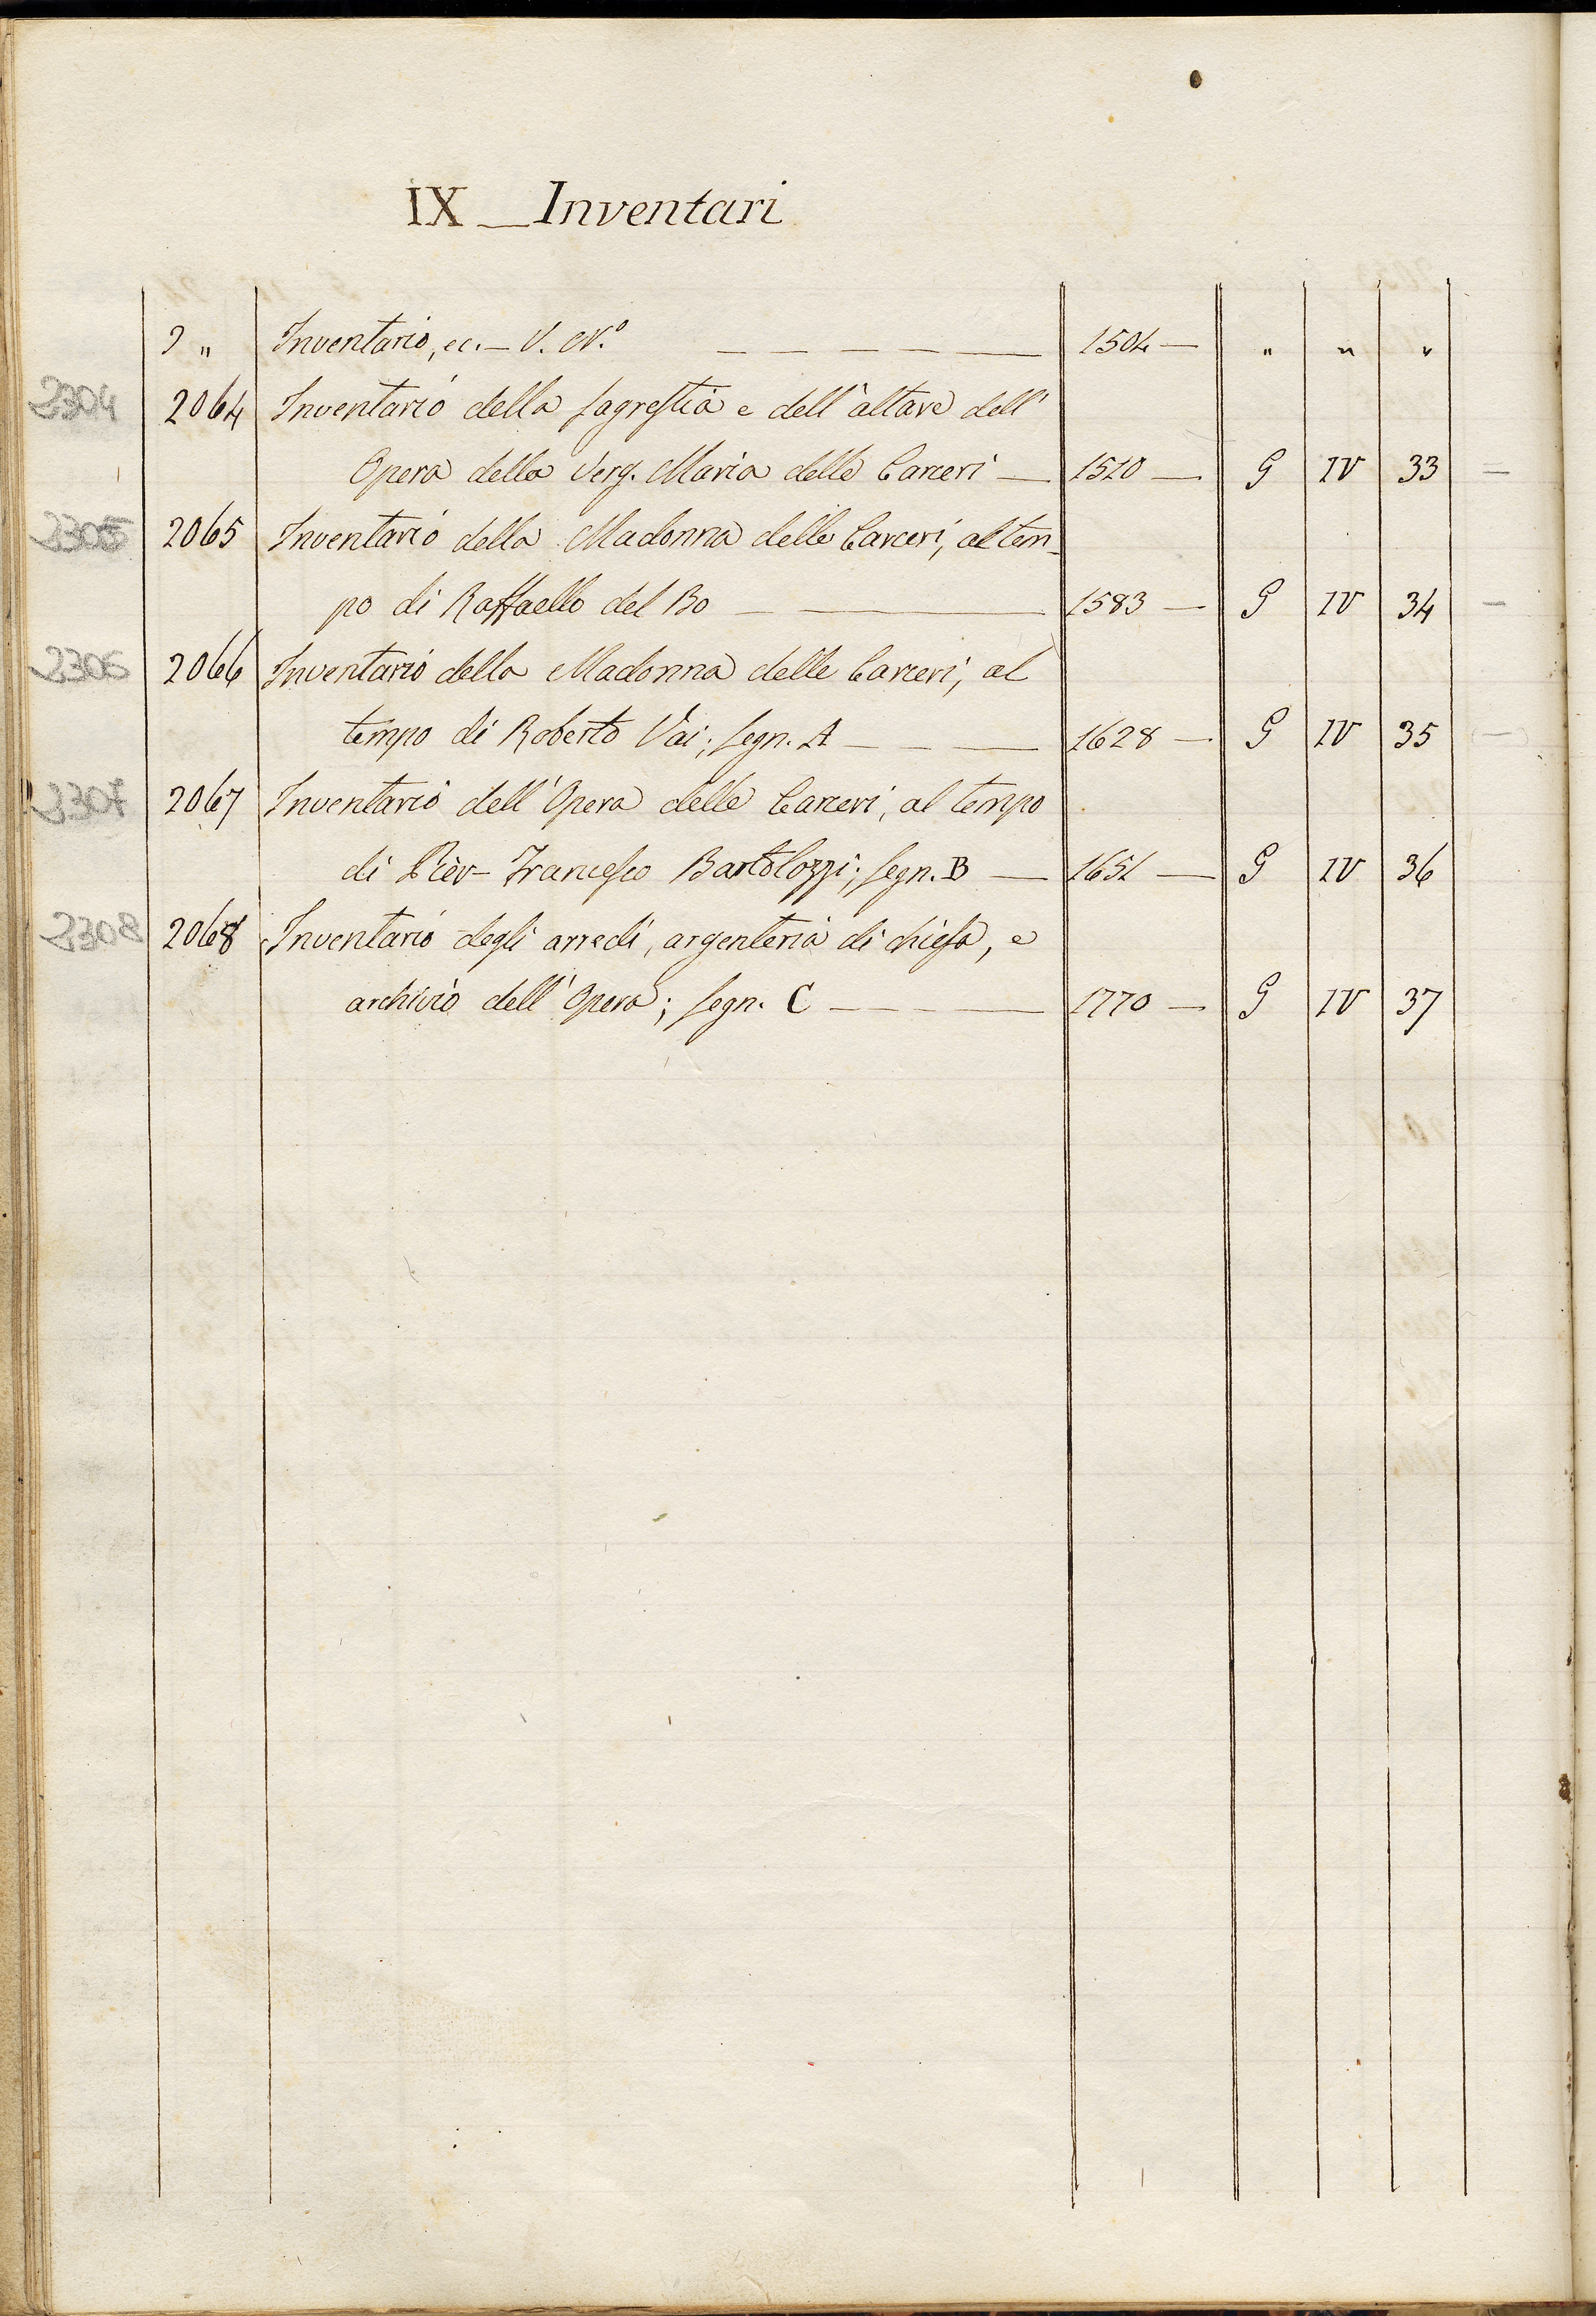 IX _ Inventari
" Inventario, ec. — V. N.º — — — — — 1504 — " " "
2304 2064 Inventario della sagrestia e dell'altare dell'
Opera della Verg. Maria delle Carceri — 1510 — G IV 33 —
2305 2065 Inventario della Madonna delle Carceri, al tem-
po di Raffaello del Bo — — 1583 — G IV 34 —
2306 2066 Inventario della Madonna delle Carceri, al
tempo di Roberto Vai; segn. A — — — 1628 — G IV 35 —
2307 2067 Inventario dell'Opera delle Carceri, al tempo
di Pier-Francesco Bartolozzi; segn. B — 1651 — G IV 36
2308 2068 Inventario degli arredi, argenteria di chiesa, e
archivio dell'Opera; segn. C — — — — 1770 — G IV 37